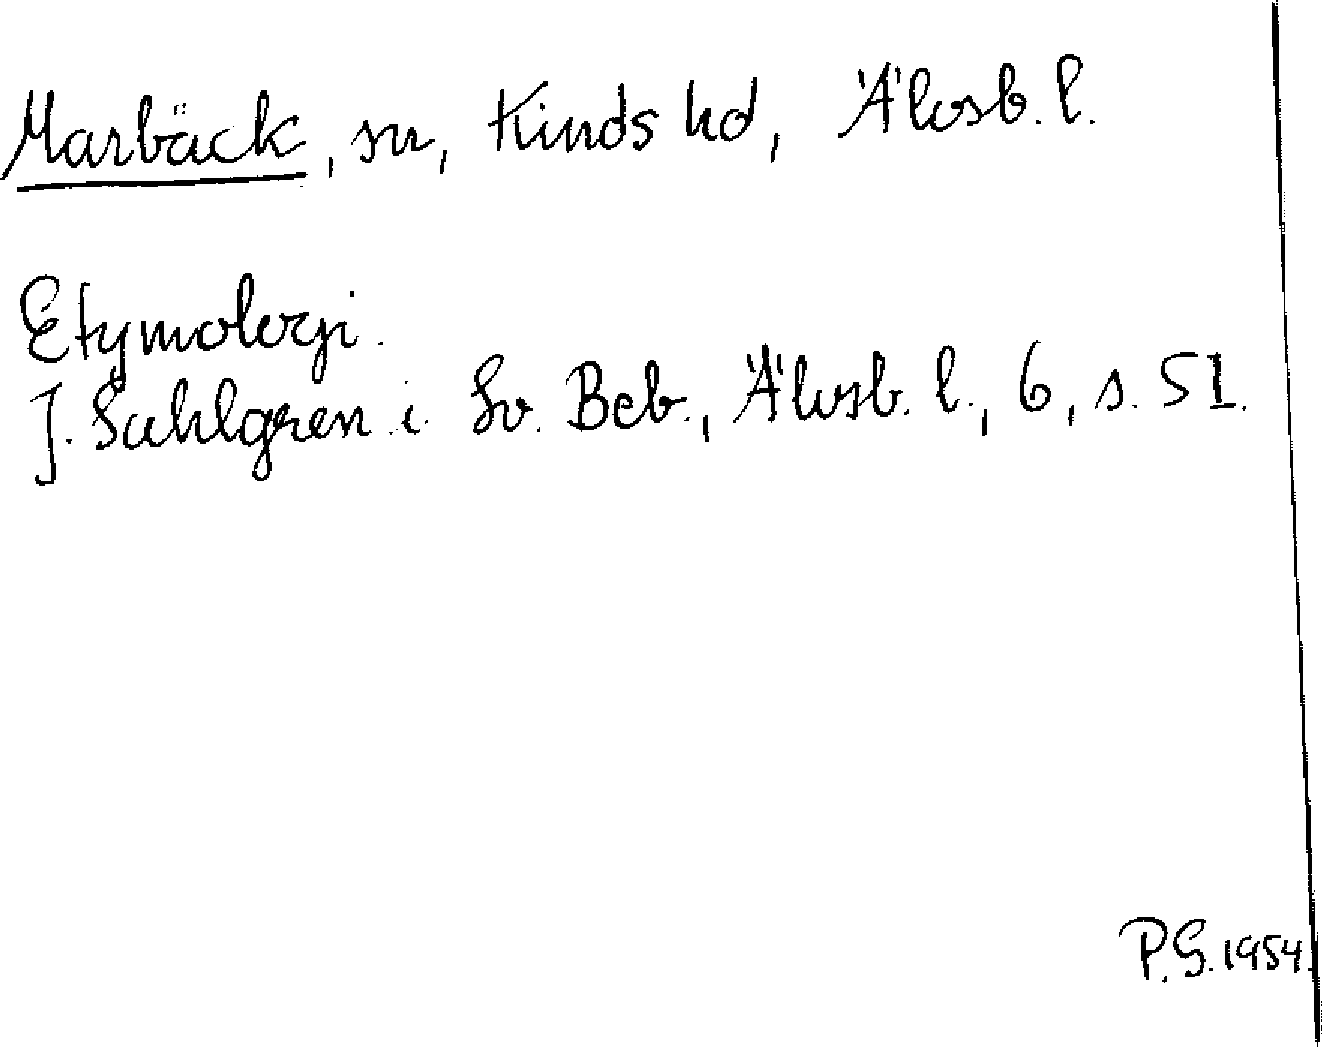 Marbäck, sn, Kinds hd, Älvsb. l.
Etymologi.
J. Sahlgren i Sv. Beb., Älvsb. l., 6, s. 51.
P.G. 1954.